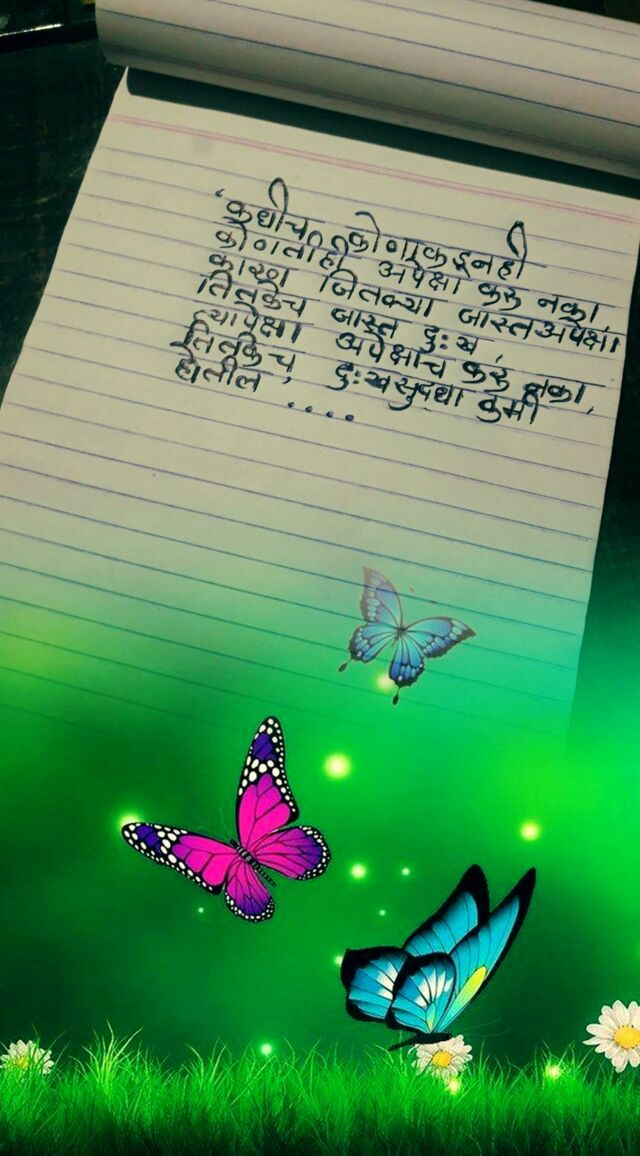 "कधीच कोणाकडूनही
कोणतीही अपेक्षा करू नका,
कारण जितक्या जास्त अपेक्षा
तितकेच जास्त दुःख,
त्यापेक्षा अपेक्षाच करू नका,
तितकेच दुःखसुद्धा कमी
होतील ....